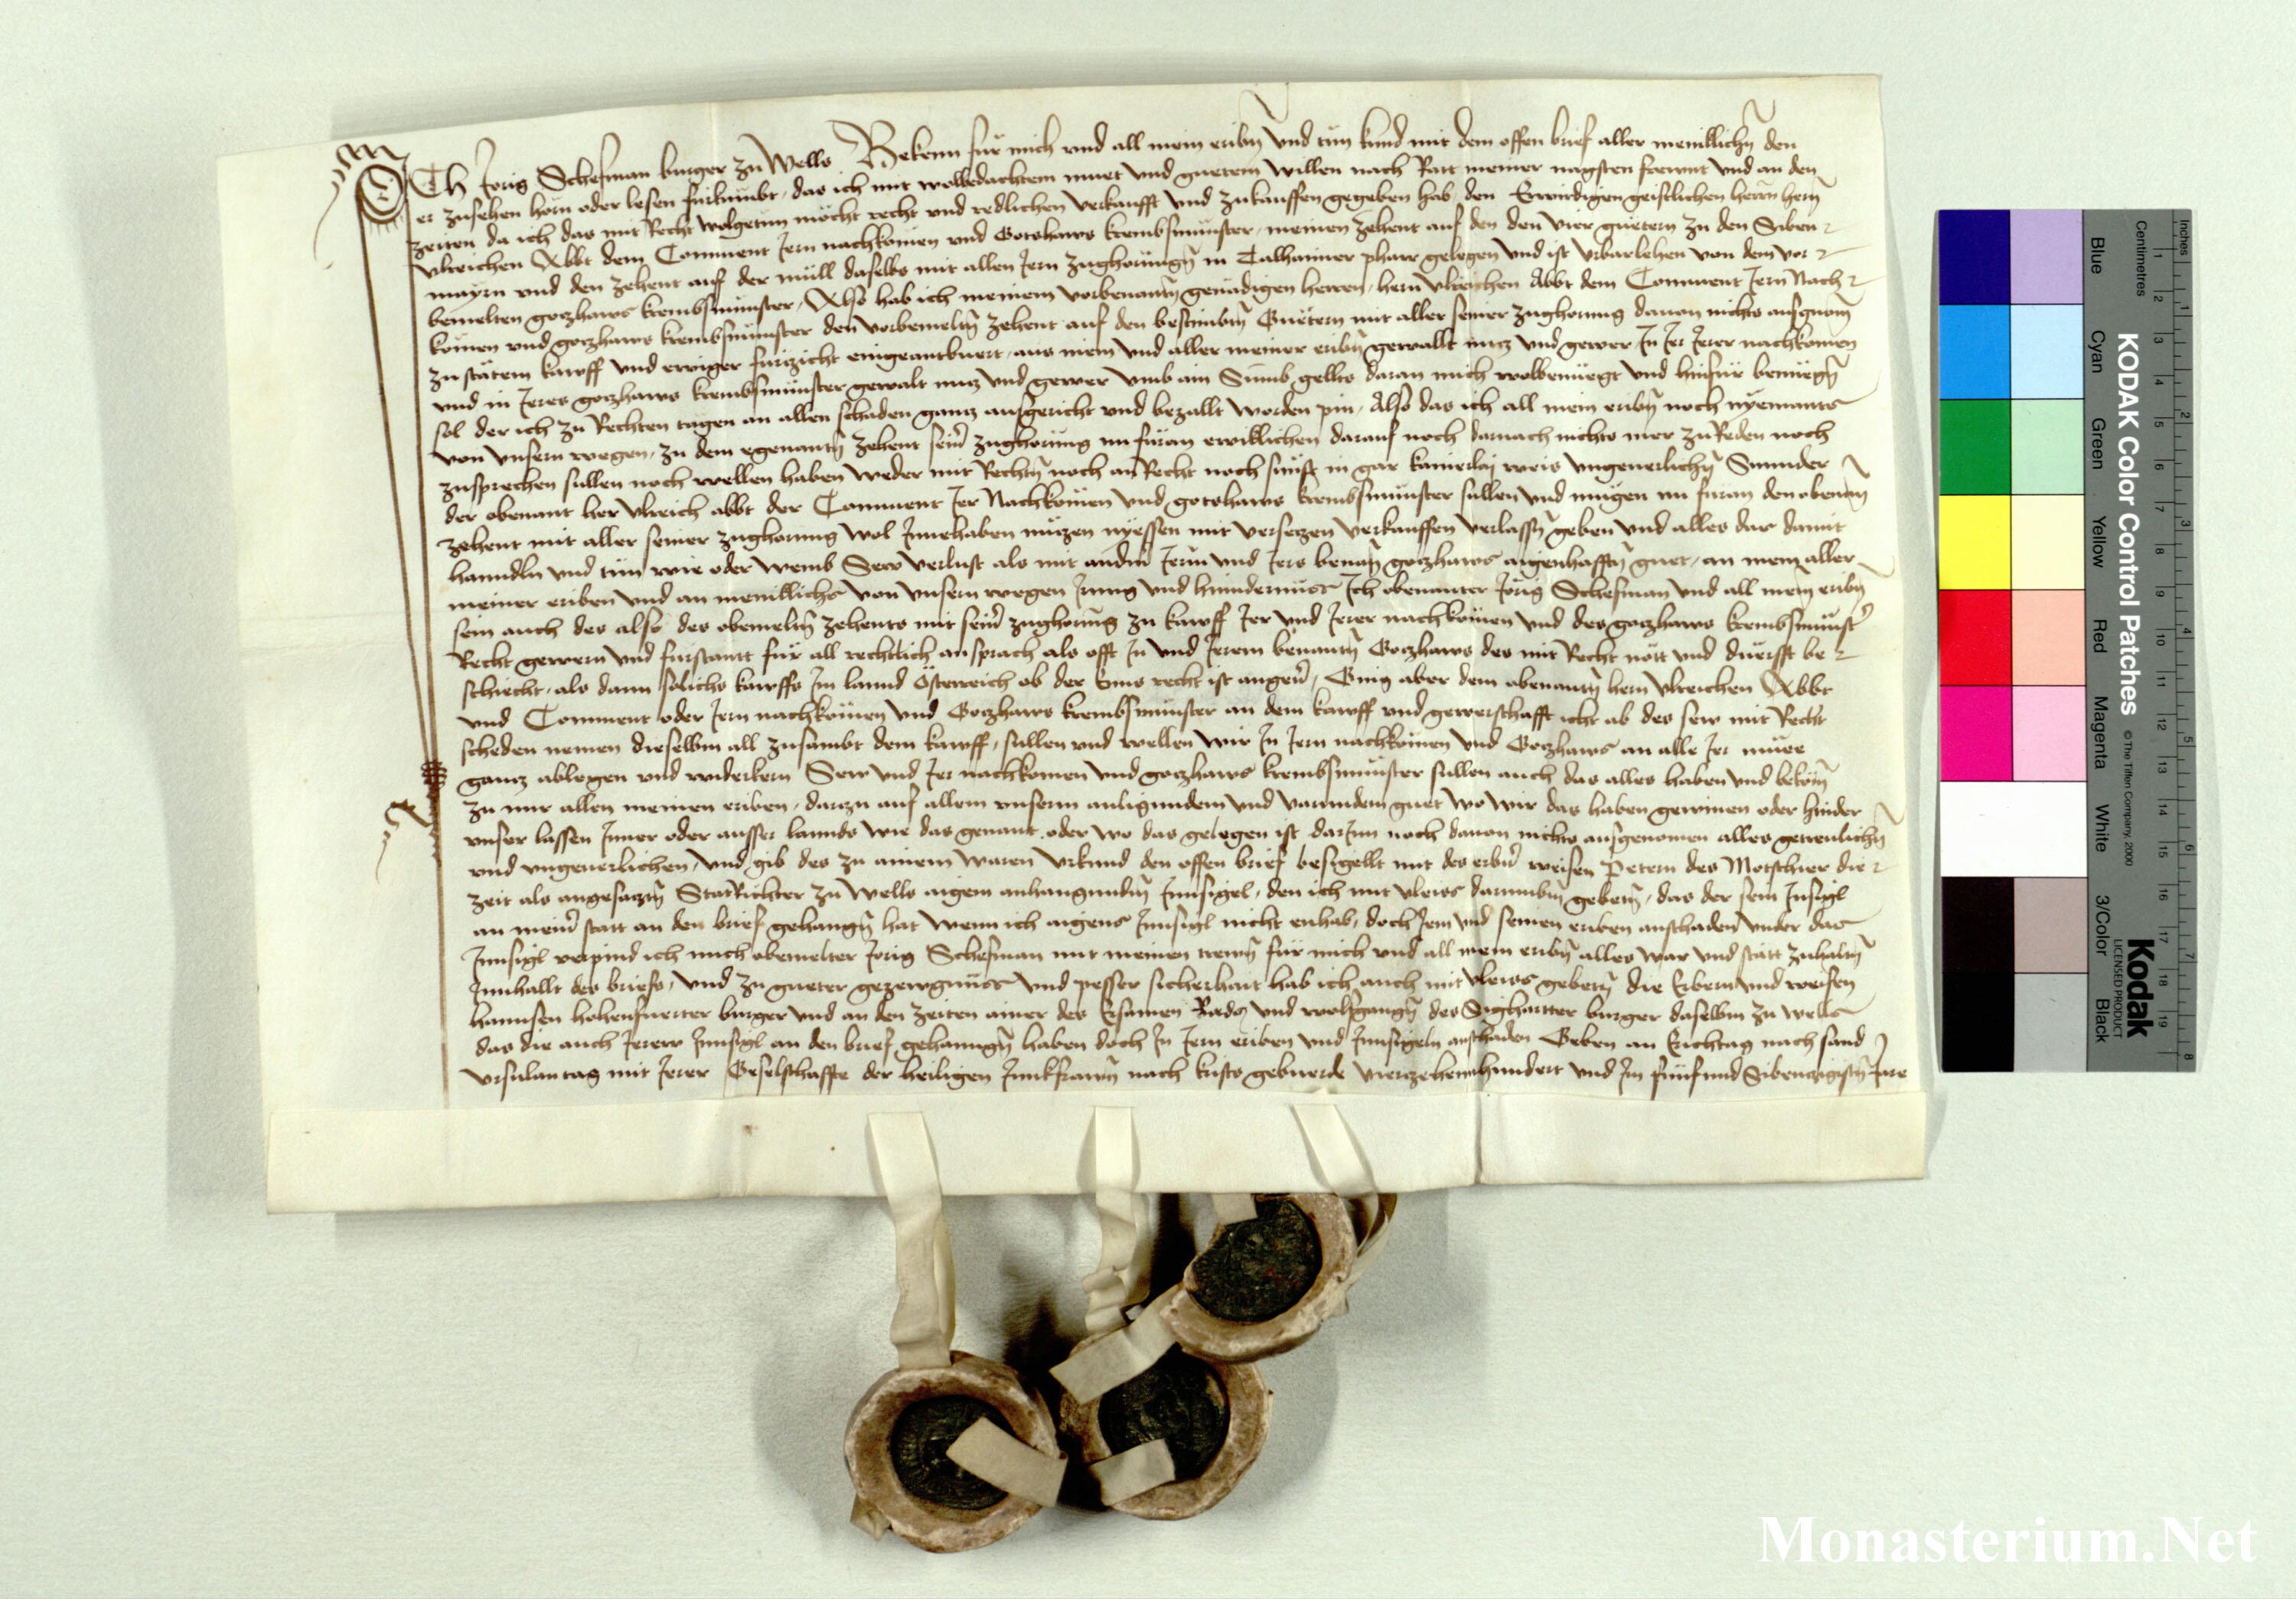 Ich Jorig Schefman burger zu Wells Bekenn für mich und all mein eribn und tun kund mit dem offen brief aller meniklichn den
er zusehen horn oder lesen fürkumbt, das ich mit wolbedachtem muet und guetem willen nach Ratt meiner nagsten frewnt und an den
zeiten da ich das mit Recht wolgetun mocht recht und redlichen verkaufft und zukauffen gegeben hab den Erwirdigen geistlichen herrn hern
Ulreichen Abbt dem Convent Jern nachkomen und Gotshaws krembsmünster, meinen zehent auf den den vier guetern zu den Siben
mayrn und den zehent auf der müll daselbs mit allen Jern zughorungn in Talhaimer pharr gelegen und ist urbarlehen von dem vor
bemelten gotzhaws krembsmünster, Also hab ich meinem vorbenantn genadigen herren, hern Ulreichen Abbt dem Convent Jern Nach
komen und gotzhaws krembsmünster den vorbemeltn zehent auf den bestimbtn Guetern mit aller seiner zughorung davon nichts ausgnom
zu stätem kawff und ewiger furtzicht eingeantburt, aus mein und aller meiner eribn gewallt nutz und gewer In Jer Jerer nachkomen
und in Jeres gotzhaws krembsmünster gewalt nutz und gewer umb ain Sumb gellts daran mich wolbenüegt und hinfür benüegn
sol der ich zu Rechten tägen an allen schaden gantz ausgericht und bezallt worden pin, Also das ich all mein eribn noch nyemants
von unsern wegen, zu dem egenantn zehent seiner zughorung nu füran ewiklichen darauf noch darnach nichts mer zuReden noch
zusprechen sullen noch wellen haben weder mit Rechtn noch an Recht noch sünst in gar kainerlaj weis ungeverlichn Sunder
der obenant her Ulreich abbt der Convent Jer Nachkömen und gotshaws krembsmünster sullen und mügen nu füran den obenan
zehent mit aller seiner zughorung wol Innehaben nützen nyessen mit versetzen verkauffen verlassn geben und alles das damit
hanndln und tün wie oder wemb Sew verlust als mit andrn Jerm und Jers benan gotzhaws aigenhafftn guet, an mein aller
meiner eriben und an meniklichs von unsern wegen Jrrung und hindernüss Ich obenanter Jörig Schefman und all mein eribn
sein auch des also des obemeltn zehents mit seiner zughorung zu kawff Jer und Jerer nachkömen und des gotzhaws krembsmünster
Recht gewern und fürstantt für all rechtlich ansprach als offt In und Jerem benantn Gotzhaws des mit Recht nött und duerfft be
schiecht, als dann solichs kawffs Im lannd Österreich ob der Enns recht ist angever, Ging aber dem obenantn hern Ulreichen Abbt
und Convent oder Jern nachkömen und Gotzhaws krembsmünster an dem kawff und gewerschafft icht ab des sew mit Recht
scheden nemen dieselbm all zusambt dem kawff, sullen und wellen wir In Jern nachkömen und Gotzhaws an alle Jer müee
gantz ablegen und widerkern Sew und Jer nachkomen und gotzhaws krembsmünster sullen auch das alles haben und bekomn
zu mir allen meinen eriben, dartzu auf allem unserm anligundem und varundem guet wo wir das haben gewinen oder hinder
unser lassen Inner oder ausser lannds wie das genant oder wo das gelegen ist darInn noch davon nichts ausgenomen alles getreulichn
und ungeverlichen, und gib des zu ainem waren urkund den offen brief besigellt mit des erbern weisen Petern des Motschier die
zeit als angesatztn StatRichter zu Wells aigem anhangundn Innsigel, den ich mit vleiss darumbn gebetn, das der sein Insigl
an meiner statt an den brief gehangn hat wenn ich aigens Innsigl nicht enhab, doch Jem und seinen eriben anschaden under das
Innsigl verpind ich mich obemelter Jörig Schefman mit meinen trewn für mich und all mein eribn alles war und stätt zuhaltn
Innhallt des briefs, und zu gueter getzewgnüss und pesser sicherhait hab ich auch mit vleiss gebetn die Erbern und weisen
hannsen hohenfuerter burger und an den zeiten ainer des Ersamen Rads und wolfgangn des Sighartter burger daselbm zu wells
das die auch Jerew Innsigl an den brief gehanngn haben doch In Jern eriben und Innsigeln anschaden Geben an Erichtag nach sand
Ursulan tag mit Jerer Geselschaffte der heiligen Junkfrawn nach kristo geburde vierzehenhundert und Im fünfundsibentzigistn Jare
KODAK Color Control Patches
© The Tiffen Company, 2000
Kodak
LICENSED PRODUCT
Blue
Cyan
Green
Yellow
Red
Magenta
White
3/Color
Black
Inches
Centimetres
1 2 3 4 5 6 7 8
1 2 3 4 5 6 7 8 9 10 11 12 13 14 15 16 17 18 19
Monasterium.Net